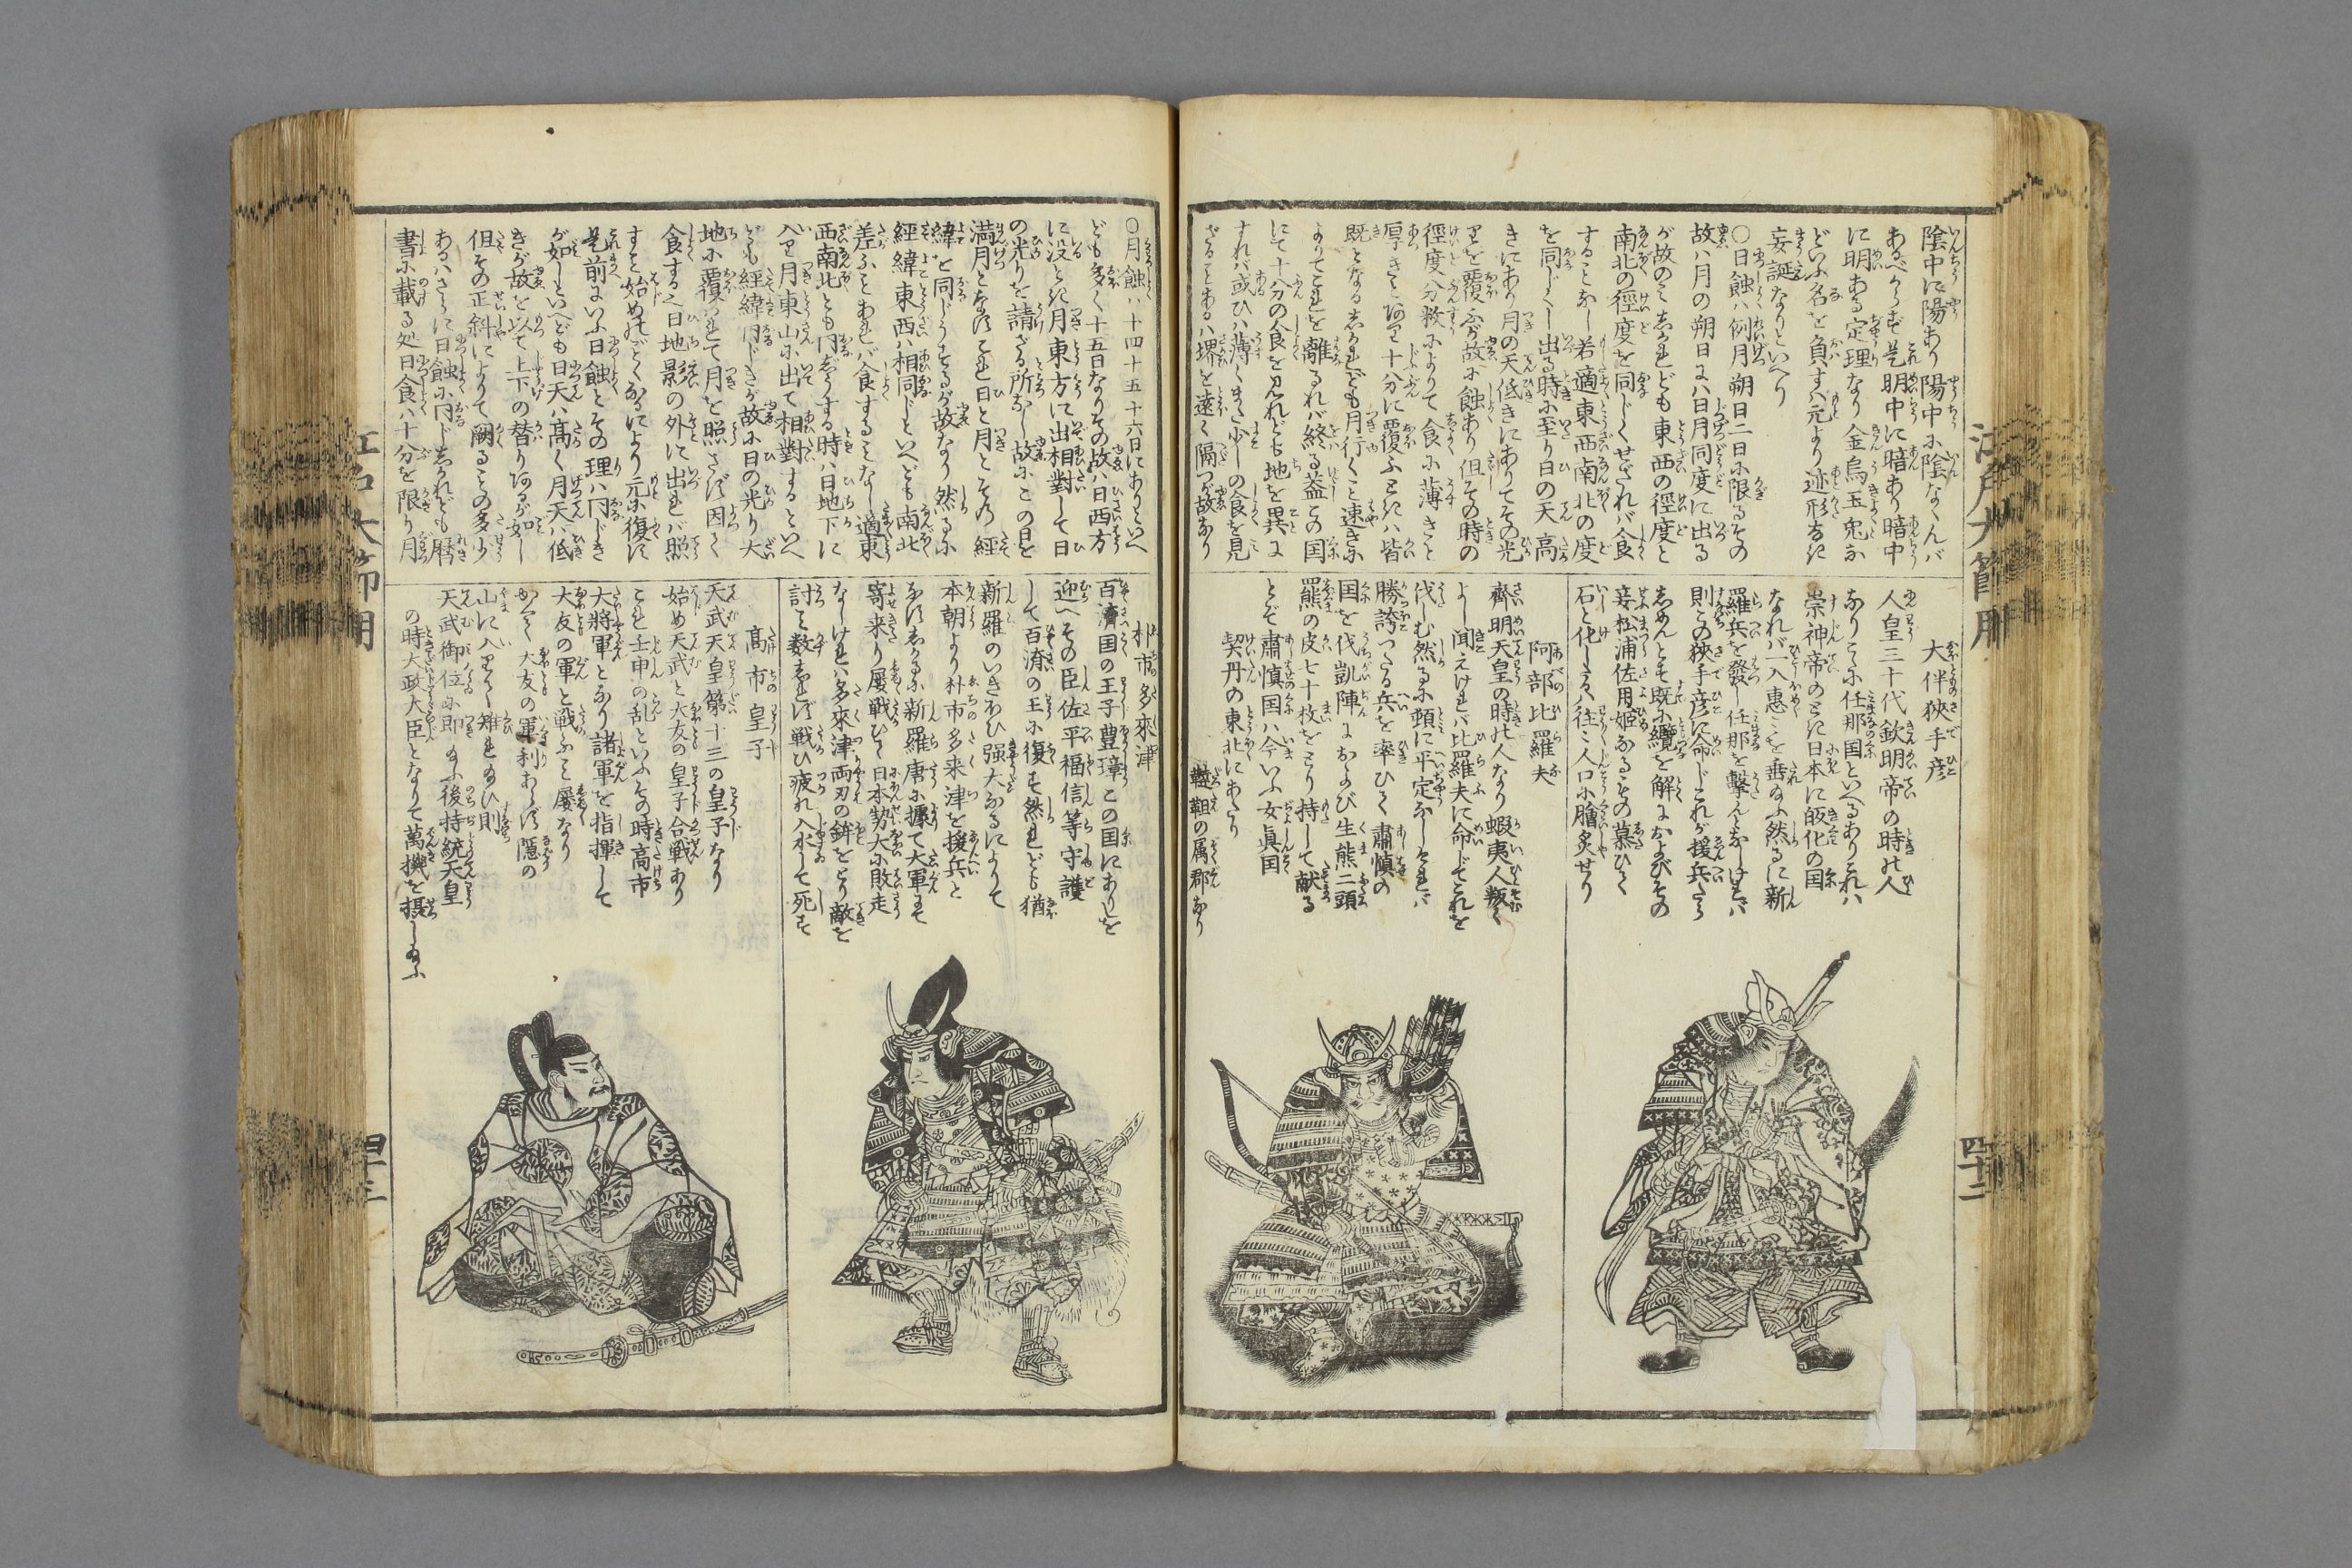 江戸大節用
四十二
陰中に陽あり陽中に陰なくんバ
あるべからず是明中に暗あり暗中
に明ある定理なり金烏玉兎な
どいふ名を負すハ元より迹形なき
妄誕なりといへり
〇日蝕ハ例月朔日二日に限るその
故ハ月の朔日にハ日月同度に出る
が故のミしかれども東西の徑度と
南北の徑度を同じくせざれバ食
することなし若適東西南北の度
を同じくし出る時に至り日の天高
きにあり月の天低きにありてその光
りを覆ふが故に蝕あり但その時の
徑度分数によりて食に薄きと
厚きとあり十分に覆ふときハ皆
既となるしかれども月行く速きに
よりてこれを離るれバ終る蓋この国
にて十分の食を見れども地を異に
すれバ或ひハ薄くまた少しの食を見
ざることあるハ堺を遠く隔つが故なり
大伴狹手彦
人皇三十代欽明帝の時の人
なりこゝに任那国といへるありこれハ
崇神帝のときに日本に皈化の国
なれバ一入惠ミを垂給ふ然るに新
羅兵を發し任那を擊んとなしけれバ
則この狹手彦に命じこれが援兵たら
しめんとも既に纜を解におよびその
妾松浦佐用姫なるもの慕ひて
石と化しるハ往々人口に膾炙せり
阿部比羅夫
齊明天皇の時の人なり蝦夷人叛く
よし聞えけれバ比羅夫に命じてこれを
伐しむ然るに頓に平定なしけれバ
勝誇つたる兵を率ひて肅慎の
国を伐凱陣におよび生熊二頭
羆熊の皮七十枚をとり持して献る
とぞ肅慎国ハ今いふ女真国
契丹の東北にあたり
韃靼の属郡なり
〇月蝕ハ十四十五十六日にありといへ
ども多く十五日なりその故ハ日西方
に没とき月東方に出相對して日
の光りを請ざる所なし故にこの日を
満月となすこれ日と月とその經
緯を同じうするが故なり然るに
經緯東西ハ相同じといへども南北
差ふことあれバ食することなし適東
西南北とも同じうする時ハ日地下に
入り月東山に出て相對するといへ
ども經緯同じきが故に日の光り大
地に覆ハれて月を照さず因て
食する之日地影の外に出れバ照
すこと始めのごとくなるにより元に復す
是前にいふ日蝕とその理ハ同じき
が如しといへども日天ハ高く月天ハ低
きが故を以て上下の替りあるが如し
但その正斜によりて闕ることの多少
あるハさらに日蝕に同じしかれども暦
書に載る処日食ハ十分を限り月
朴市多來津
百濟国の王子豊璋この国にありしを
迎へその臣佐平福信等守護
して百濟の王に復す然れども猶
新羅のいきおひ强大なるによりて
本朝より朴市多来津を援兵と
なすしかるに新羅唐に據て大軍にて
寄来り屢戦ひて日本勢大に敗走
なしけれバ多來津両刃の鉾をとり敵を
討こと数しれず戦ひ疲れ入水して死す
高市皇子
天武天皇第十三の皇子なり
始め天武と大友の皇子合戦あり
これを壬申の乱といふその時高市
大將軍となり諸軍を指揮して
大友の軍と戦ふこと屢なり
かくて大友の軍利あらず隱の
山に入りて薨れ給ひ則
天武御位に即給ふ後持統天皇
の時大政大臣となりて萬機を摂し給ふ